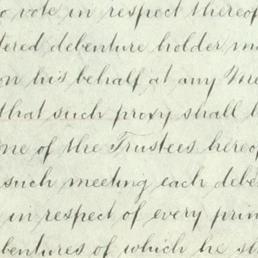 o vote in respect thereof
tered debenture holder m
on his behalf at any Me
that such proxy shall b
ne of the Trustees hereof
such meeting each debe
in respect of every prin
bentures of which he s